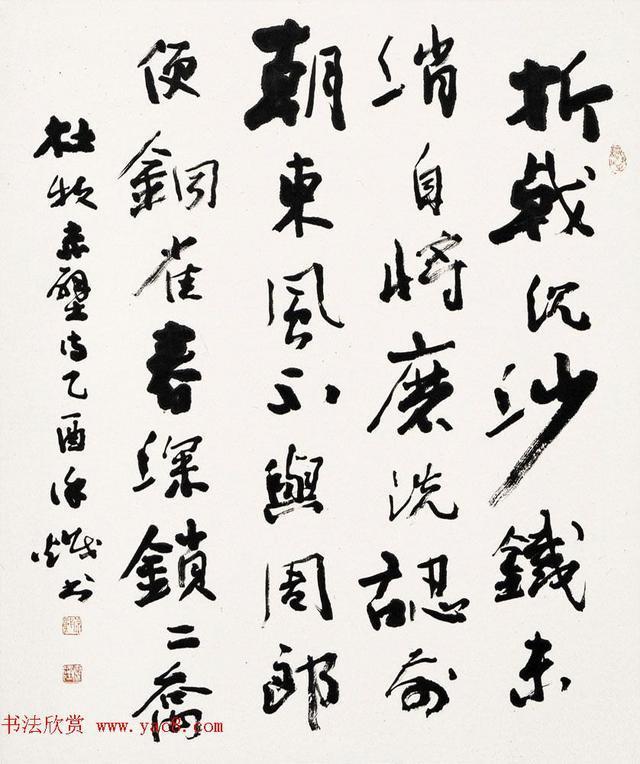 折戟沉沙鐵未
銷自將磨洗認前
朝東風不與周郎
便銅雀春深鎖二喬
杜牧赤壁诗乙酉徐书
书法欣赏 www.yac8.com